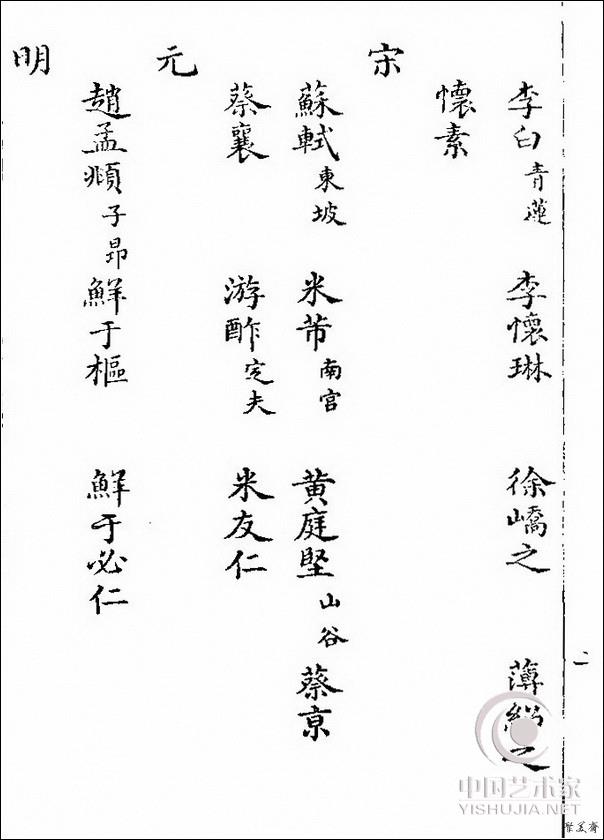 李白青蓮 李懷琳 徐嶠之 薄紹之
懷素
宋
蘇軾東坡 米芾南宫 黄庭堅山谷 蔡京
蔡襄 游酢定夫 米友仁
元
趙孟頫子昂 鮮于樞 鮮于必仁
明
二
聚美齋
中国艺术家
YISHUJIA.NET